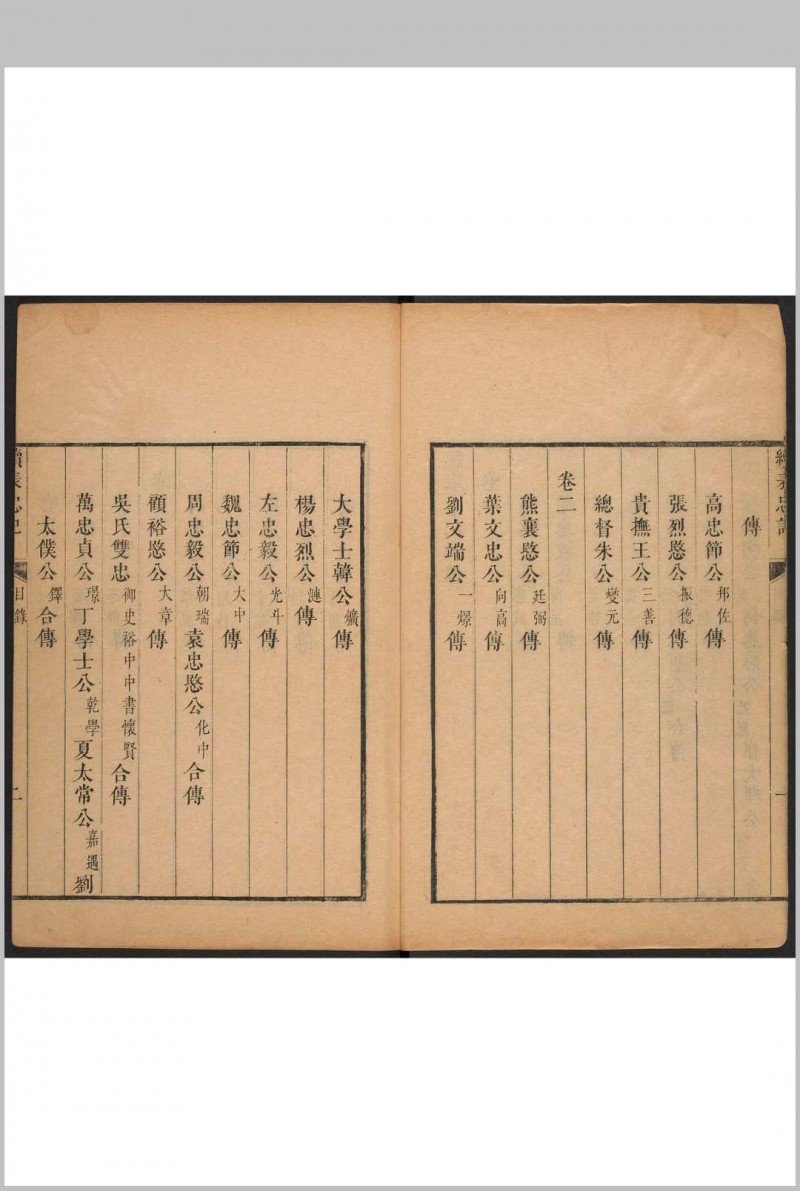 傳
高忠節公邦佐傳
張烈愍公振德傳
貴撫王公三善傳
總督朱公燮元傳
卷二
熊襄愍公廷弼傳
葉文忠公向高傳
劉文端公一燝傳
大學士韓公爌傳
楊忠烈公漣傳
左忠毅公光斗傳
魏忠節公大中傳
周忠毅公朝瑞袁忠愍公化中合傳
顧裕愍公大章傳
吳氏雙忠御史裕中中書懷賢合傳
萬忠貞公璟丁學士公乾學夏太常公嘉遇劉
太僕公鐸合傳
目錄
二